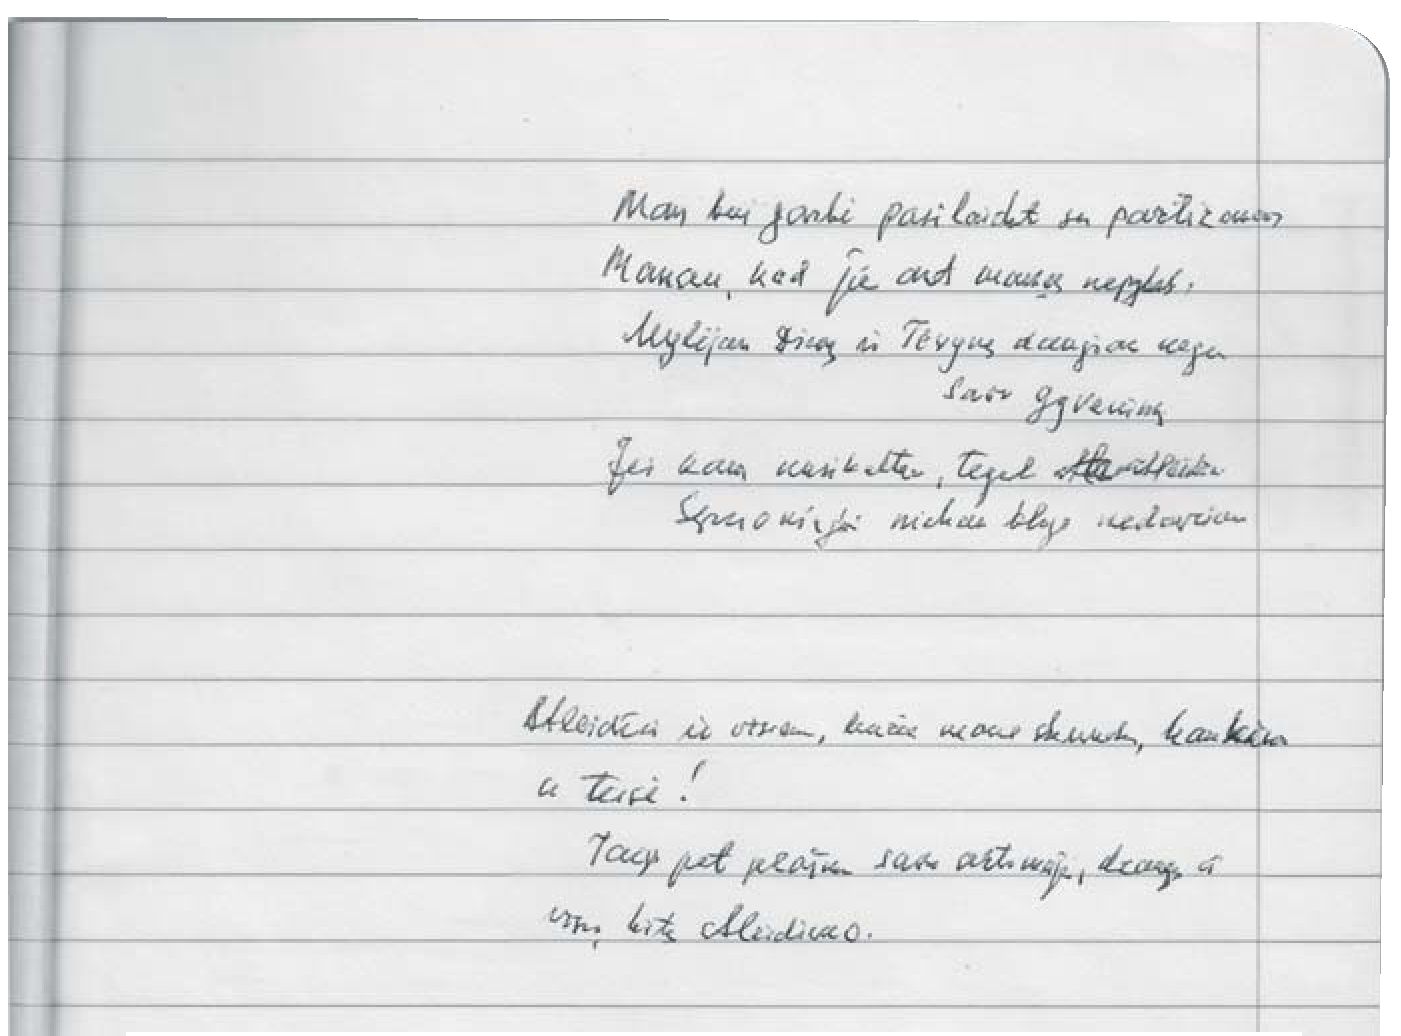 Man bus garbė pasilaidot su partizanais
Manau, kad jie ant manęs nepyks.
Mylėjau Dievą ir Tėvynę daugiau negu
savo gyvenimą
Jei kam nusikaltau, tegul atleidžia
Sąmoningai niekam blogo nedariau
Atleidžiu ir visiem, kurie mane skundė, kankino
ir teisė!
Taip pat prašau savo artimųjų, draugų ir
visų kitų atleidimo.